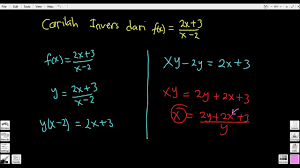 Carilah Invers dari f(x) = (2x+3)/(x-2)
f(x) = (2x+3)/(x-2)
y = (2x+3)/(x-2)
y(x-2) = 2x+3
xy-2y = 2x+3
xy = 2y+2x+3
x = (2y+2x+3)/y